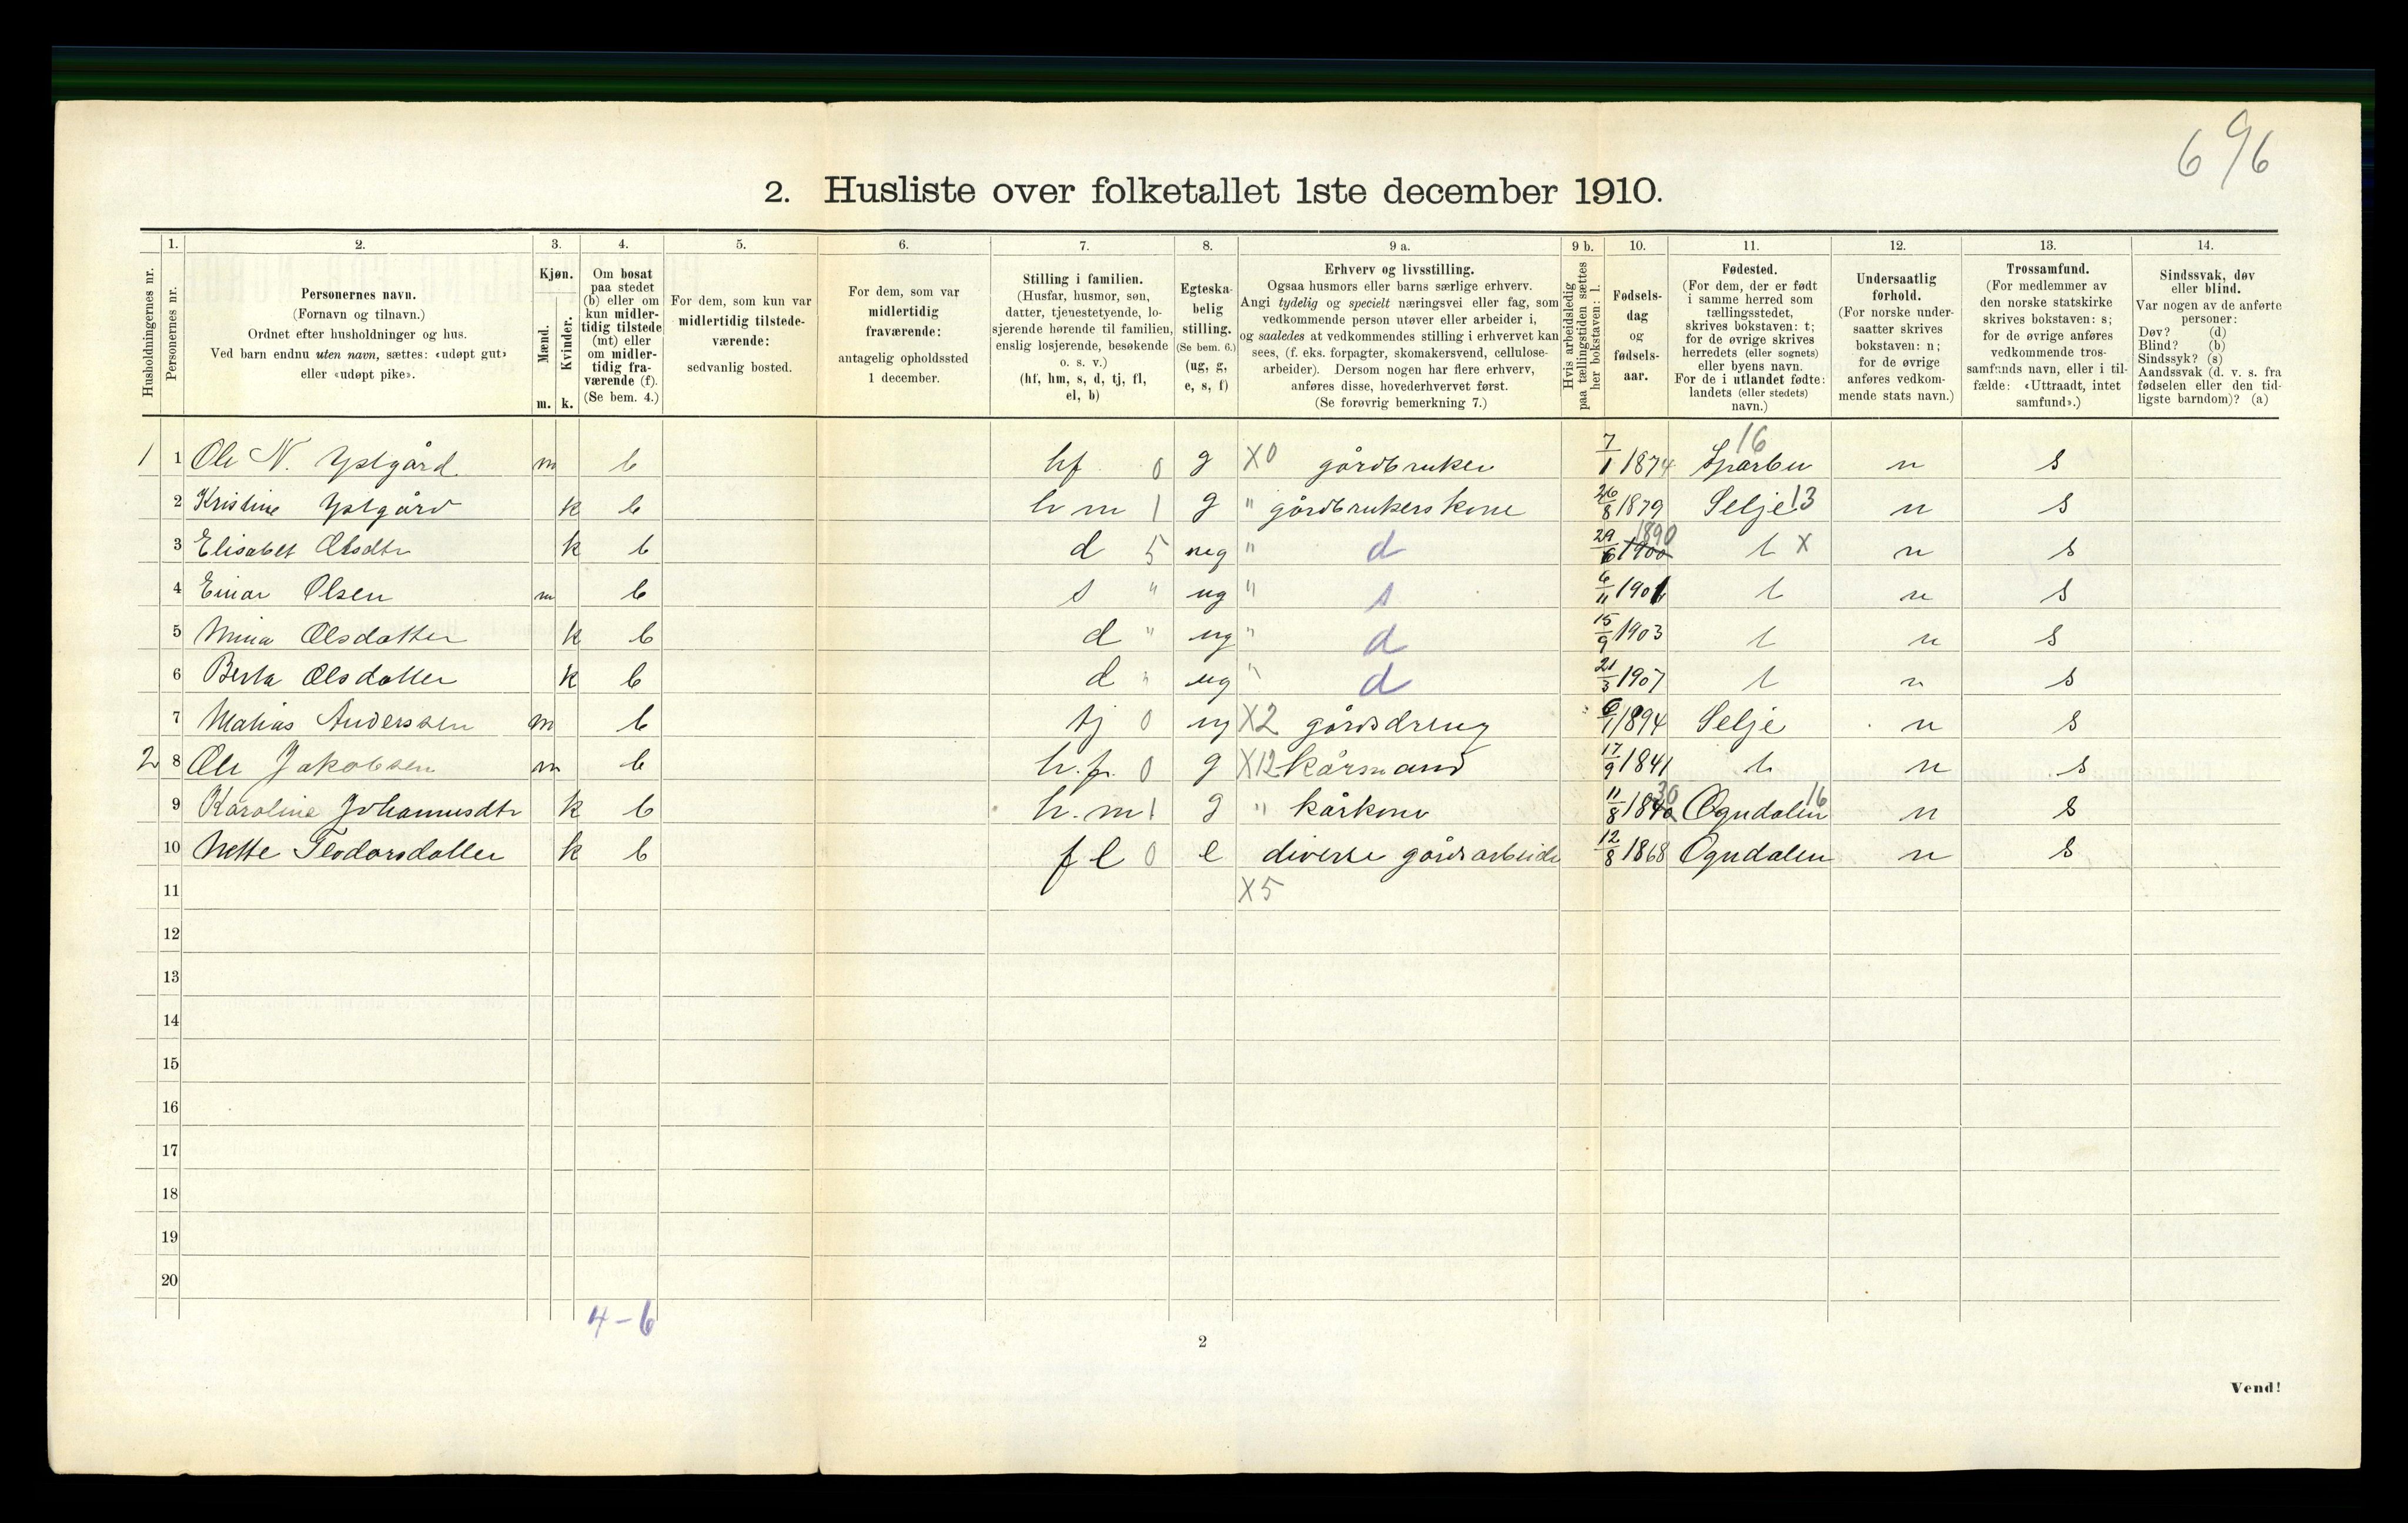 696
2. Husliste over folketallet 1ste december 1910.
Husholdningernes nr.
1.
Personernes nr.
2.
Personernes navn.
(Fornavn og tilnavn.)
Ordnet efter husholdninger og hus.
Ved barn endnu uten navn, sættes: «udøpt gut»
eller «udøpt pike».
3.
Kjøn.
Mænd.
Kvinder.
m. k.
4.
Om bosat
paa stedet
(b) eller om
kun midler-
tidig tilstede
(mt) eller
om midler-
tidig fra-
værende (f).
(Se bem. 4.)
5.
For dem, som kun var
midlertidig tilstede-
værende:
sedvanlig bosted.
6.
For dem, som var
midlertidig
fraværende:
antagelig opholdssted
1 december.
7.
Stilling i familien.
(Husfar, husmor, søn,
datter, tjenestetyende, lo-
sjerende hørende til familien,
enslig losjerende, besøkende
o. s. v.)
(hf, hm, s, d, tj, fl,
el, b)
8.
Egteska-
belig
stilling.
(Se bem. 6.)
(ug, g,
e, s, f)
9 a.
Erhverv og livsstilling.
Ogsaa husmors eller barns særlige erhverv.
Angi tydelig og specielt næringsvei eller fag, som
vedkommende person utøver eller arbeider i,
og saaledes at vedkommendes stilling i erhvervet kan
sees, (f. eks. forpagter, skomakersvend, cellulose-
arbeider). Dersom nogen har flere erhverv,
anføres disse, hovederhvervet først.
(Se forøvrig bemerkning 7.)
9 b.
Hvis arbeidsledig
paa tællingstiden sættes
her bokstaven: l.
10.
Fødsels-
dag
og
fødsels-
aar.
11.
Fødested.
(For dem, der er født
i samme herred som
tællingsstedet,
skrives bokstaven: t;
for de øvrige skrives
herredets (eller sognets)
eller byens navn.
For de i utlandet fødte:
landets (eller stedets)
navn.)
12.
Undersaatlig
forhold.
(For norske under-
saatter skrives
bokstaven: n;
for de øvrige
anføres vedkom-
mende stats navn.)
13.
Trossamfund.
(For medlemmer av
den norske statskirke
skrives bokstaven: s;
for de øvrige anføres
vedkommende tros-
samfunds navn, eller i til-
fælde: «Uttraadt, intet
samfund».)
14.
Sindssvak, døv
eller blind.
Var nogen av de anførte
personer:
Døv? (d)
Blind? (b)
Sindssyk? (s)
Aandssvak (d. v. s. fra
fødselen eller den tid-
ligste barndom)? (a)
1 1 Ole N. Ystgård m b hf 0 g X0 gårdbruker 7/1 1874 Sparbu 16 n s
2 Kristine Ystgård k b hm 1 g " gårdbrukerskone 26/8 1879 Selje 13 n s
3 Elisabet Olsdtr k b d 5 ug " d 29/6 1900 1890 t X n s
4 Einar Olsen m b s " ug " s 6/11 1901 t n s
5 Mina Olsdatter k b d " ug " d 15/9 1903 t n s
6 Berta Olsdatter k b d " ug " d 21/3 1907 t n s
7 Matias Anderssen m b tj 0 ug X2 gårdsdreng 6/1 1894 Selje n s
2 8 Ole Jakobsen m b h.f. 0 g X12 kårmand 17/9 1841 t n s
9 Karoline Johannesdtr k b h.m 1 g " kårkone 11/8 1840 30 Ogndalen 16 n s
10 Nette Teodorsdatter k b fl 0 e diverse gårdsarbeide 12/8 1868 Ogndalen n s
11 X5
12
13
14
15
16
17
18
19
20
4-6
2
Vend!